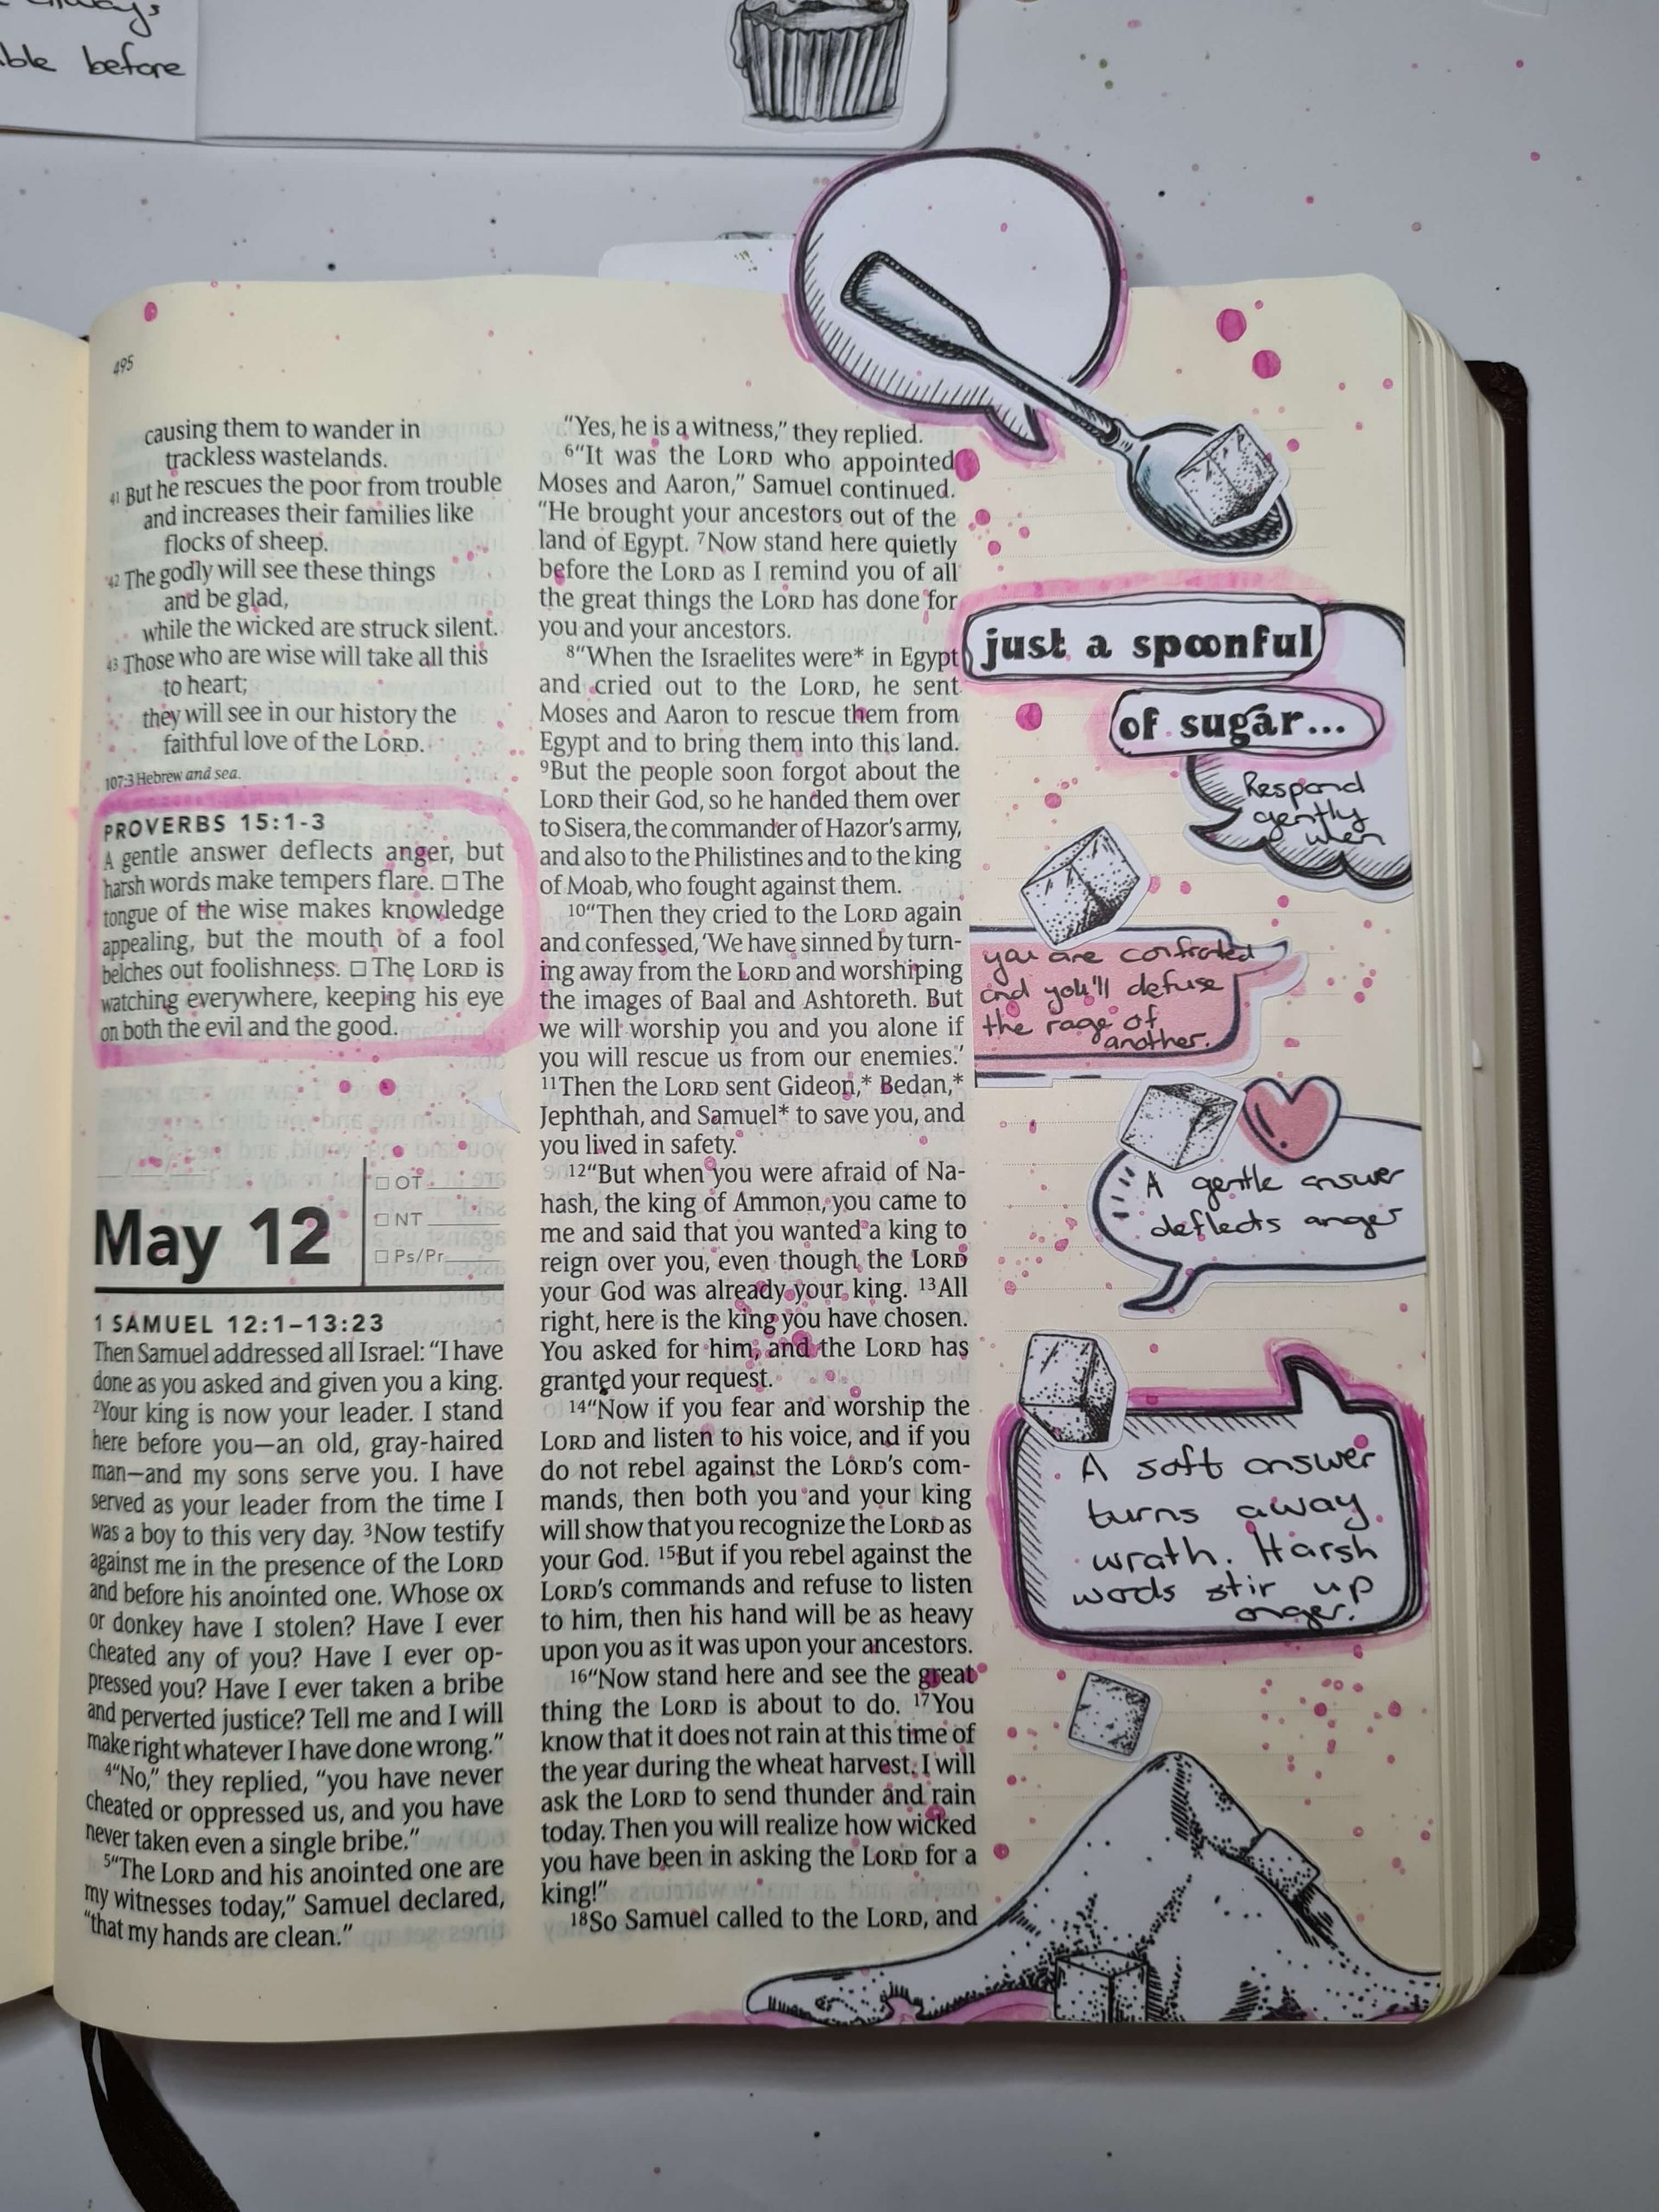 always
ble before
495
causing them to wander in
trackless wastelands.
41 But he rescues the poor from trouble
and increases their families like
flocks of sheep.
42 The godly will see these things
and be glad,
while the wicked are struck silent.
43 Those who are wise will take all this
to heart;
they will see in our history the
faithful love of the LORD.
107:3 Hebrew and sea.
PROVERBS 15:1-3
A gentle answer deflects anger, but
harsh words make tempers flare. □ The
tongue of the wise makes knowledge
appealing, but the mouth of a fool
belches out foolishness. □ The LORD is
watching everywhere, keeping his eye
on both the evil and the good.
May 12
□ OT
□ NT
□ Ps/Pr
1 SAMUEL 12:1–13:23
Then Samuel addressed all Israel: “I have
done as you asked and given you a king.
2Your king is now your leader. I stand
here before you—an old, gray-haired
man—and my sons serve you. I have
served as your leader from the time I
was a boy to this very day. 3Now testify
against me in the presence of the LORD
and before his anointed one. Whose ox
or donkey have I stolen? Have I ever
cheated any of you? Have I ever op-
pressed you? Have I ever taken a bribe
and perverted justice? Tell me and I will
make right whatever I have done wrong.”
4“No,” they replied, “you have never
cheated or oppressed us, and you have
never taken even a single bribe.”
5“The LORD and his anointed one are
my witnesses today,” Samuel declared,
“that my hands are clean.”
“Yes, he is a witness,” they replied.
6“It was the LORD who appointed
Moses and Aaron,” Samuel continued.
“He brought your ancestors out of the
land of Egypt. 7Now stand here quietly
before the LORD as I remind you of all
the great things the LORD has done for
you and your ancestors.
8“When the Israelites were* in Egypt
and cried out to the LORD, he sent
Moses and Aaron to rescue them from
Egypt and to bring them into this land.
9But the people soon forgot about the
LORD their God, so he handed them over
to Sisera, the commander of Hazor’s army,
and also to the Philistines and to the king
of Moab, who fought against them.
10“Then they cried to the LORD again
and confessed, ‘We have sinned by turn-
ing away from the LORD and worshiping
the images of Baal and Ashtoreth. But
we will worship you and you alone if
you will rescue us from our enemies.’
11Then the LORD sent Gideon,* Bedan,*
Jephthah, and Samuel* to save you, and
you lived in safety.
12“But when you were afraid of Na-
hash, the king of Ammon, you came to
me and said that you wanted a king to
reign over you, even though the LORD
your God was already your king. 13All
right, here is the king you have chosen.
You asked for him, and the LORD has
granted your request.
14“Now if you fear and worship the
LORD and listen to his voice, and if you
do not rebel against the LORD’s com-
mands, then both you and your king
will show that you recognize the LORD as
your God. 15But if you rebel against the
LORD’s commands and refuse to listen
to him, then his hand will be as heavy
upon you as it was upon your ancestors.
16“Now stand here and see the great
thing the LORD is about to do. 17You
know that it does not rain at this time of
the year during the wheat harvest. I will
ask the LORD to send thunder and rain
today. Then you will realize how wicked
you have been in asking the LORD for a
king!”
18So Samuel called to the LORD, and
just a spoonful
of sugar...
Respond
gently
when
you are confronted
and you'll defuse
the rage of
another.
A gentle answer
deflects anger
A soft answer
turns away
wrath. Harsh
words stir up
anger!